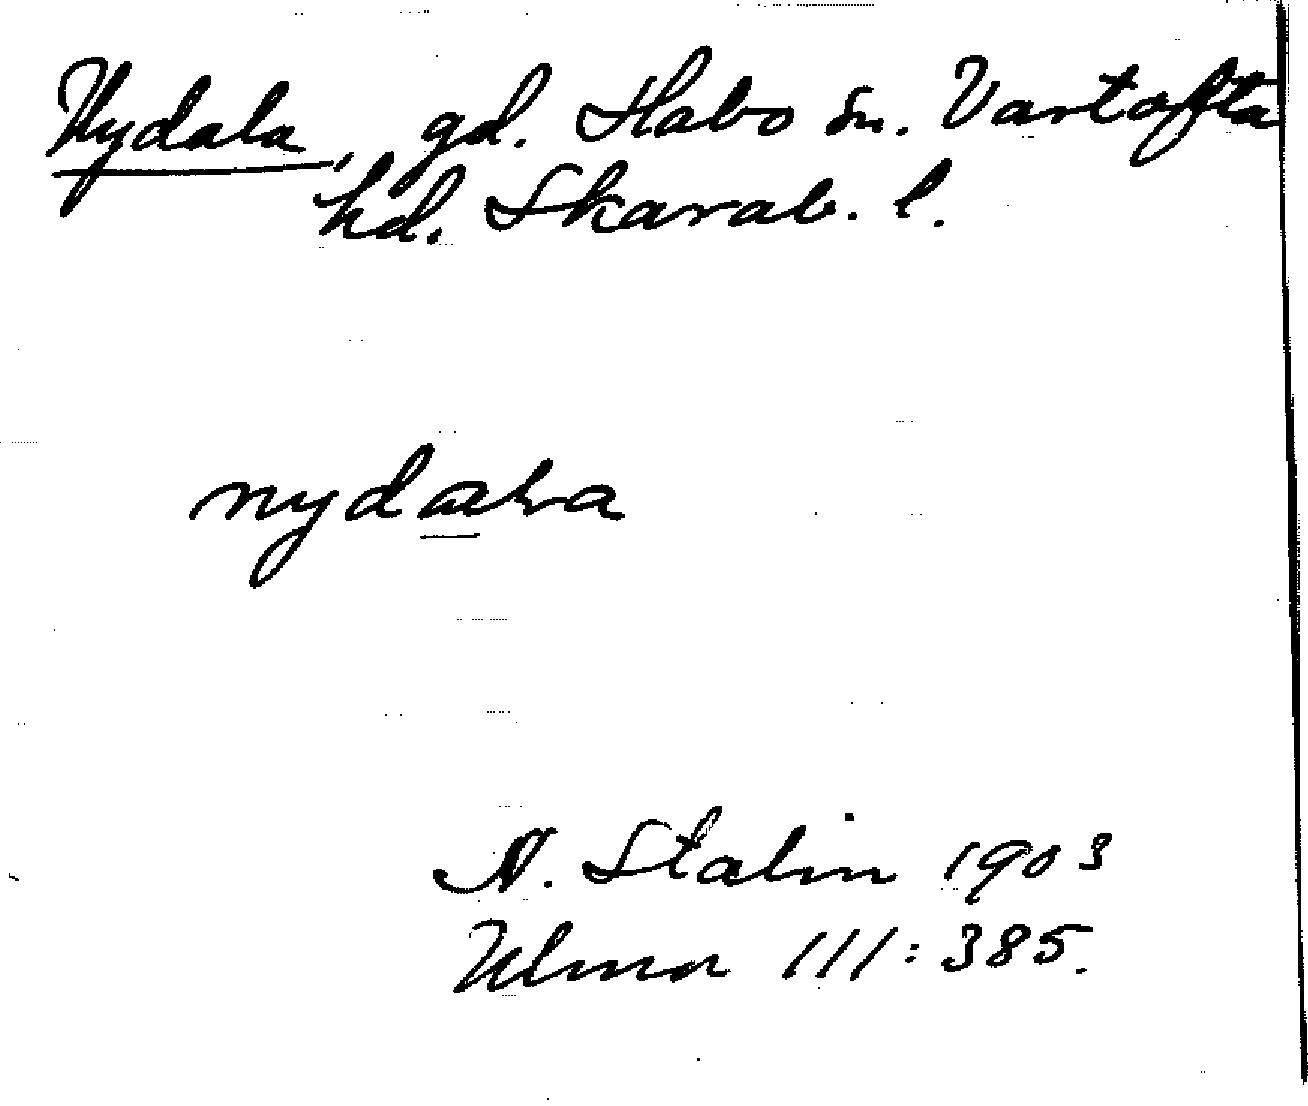 Nydala, gd. Habo sn. Vartofta
hd. Skarab. l.
nydala
N. Stalin 1903
111:385.